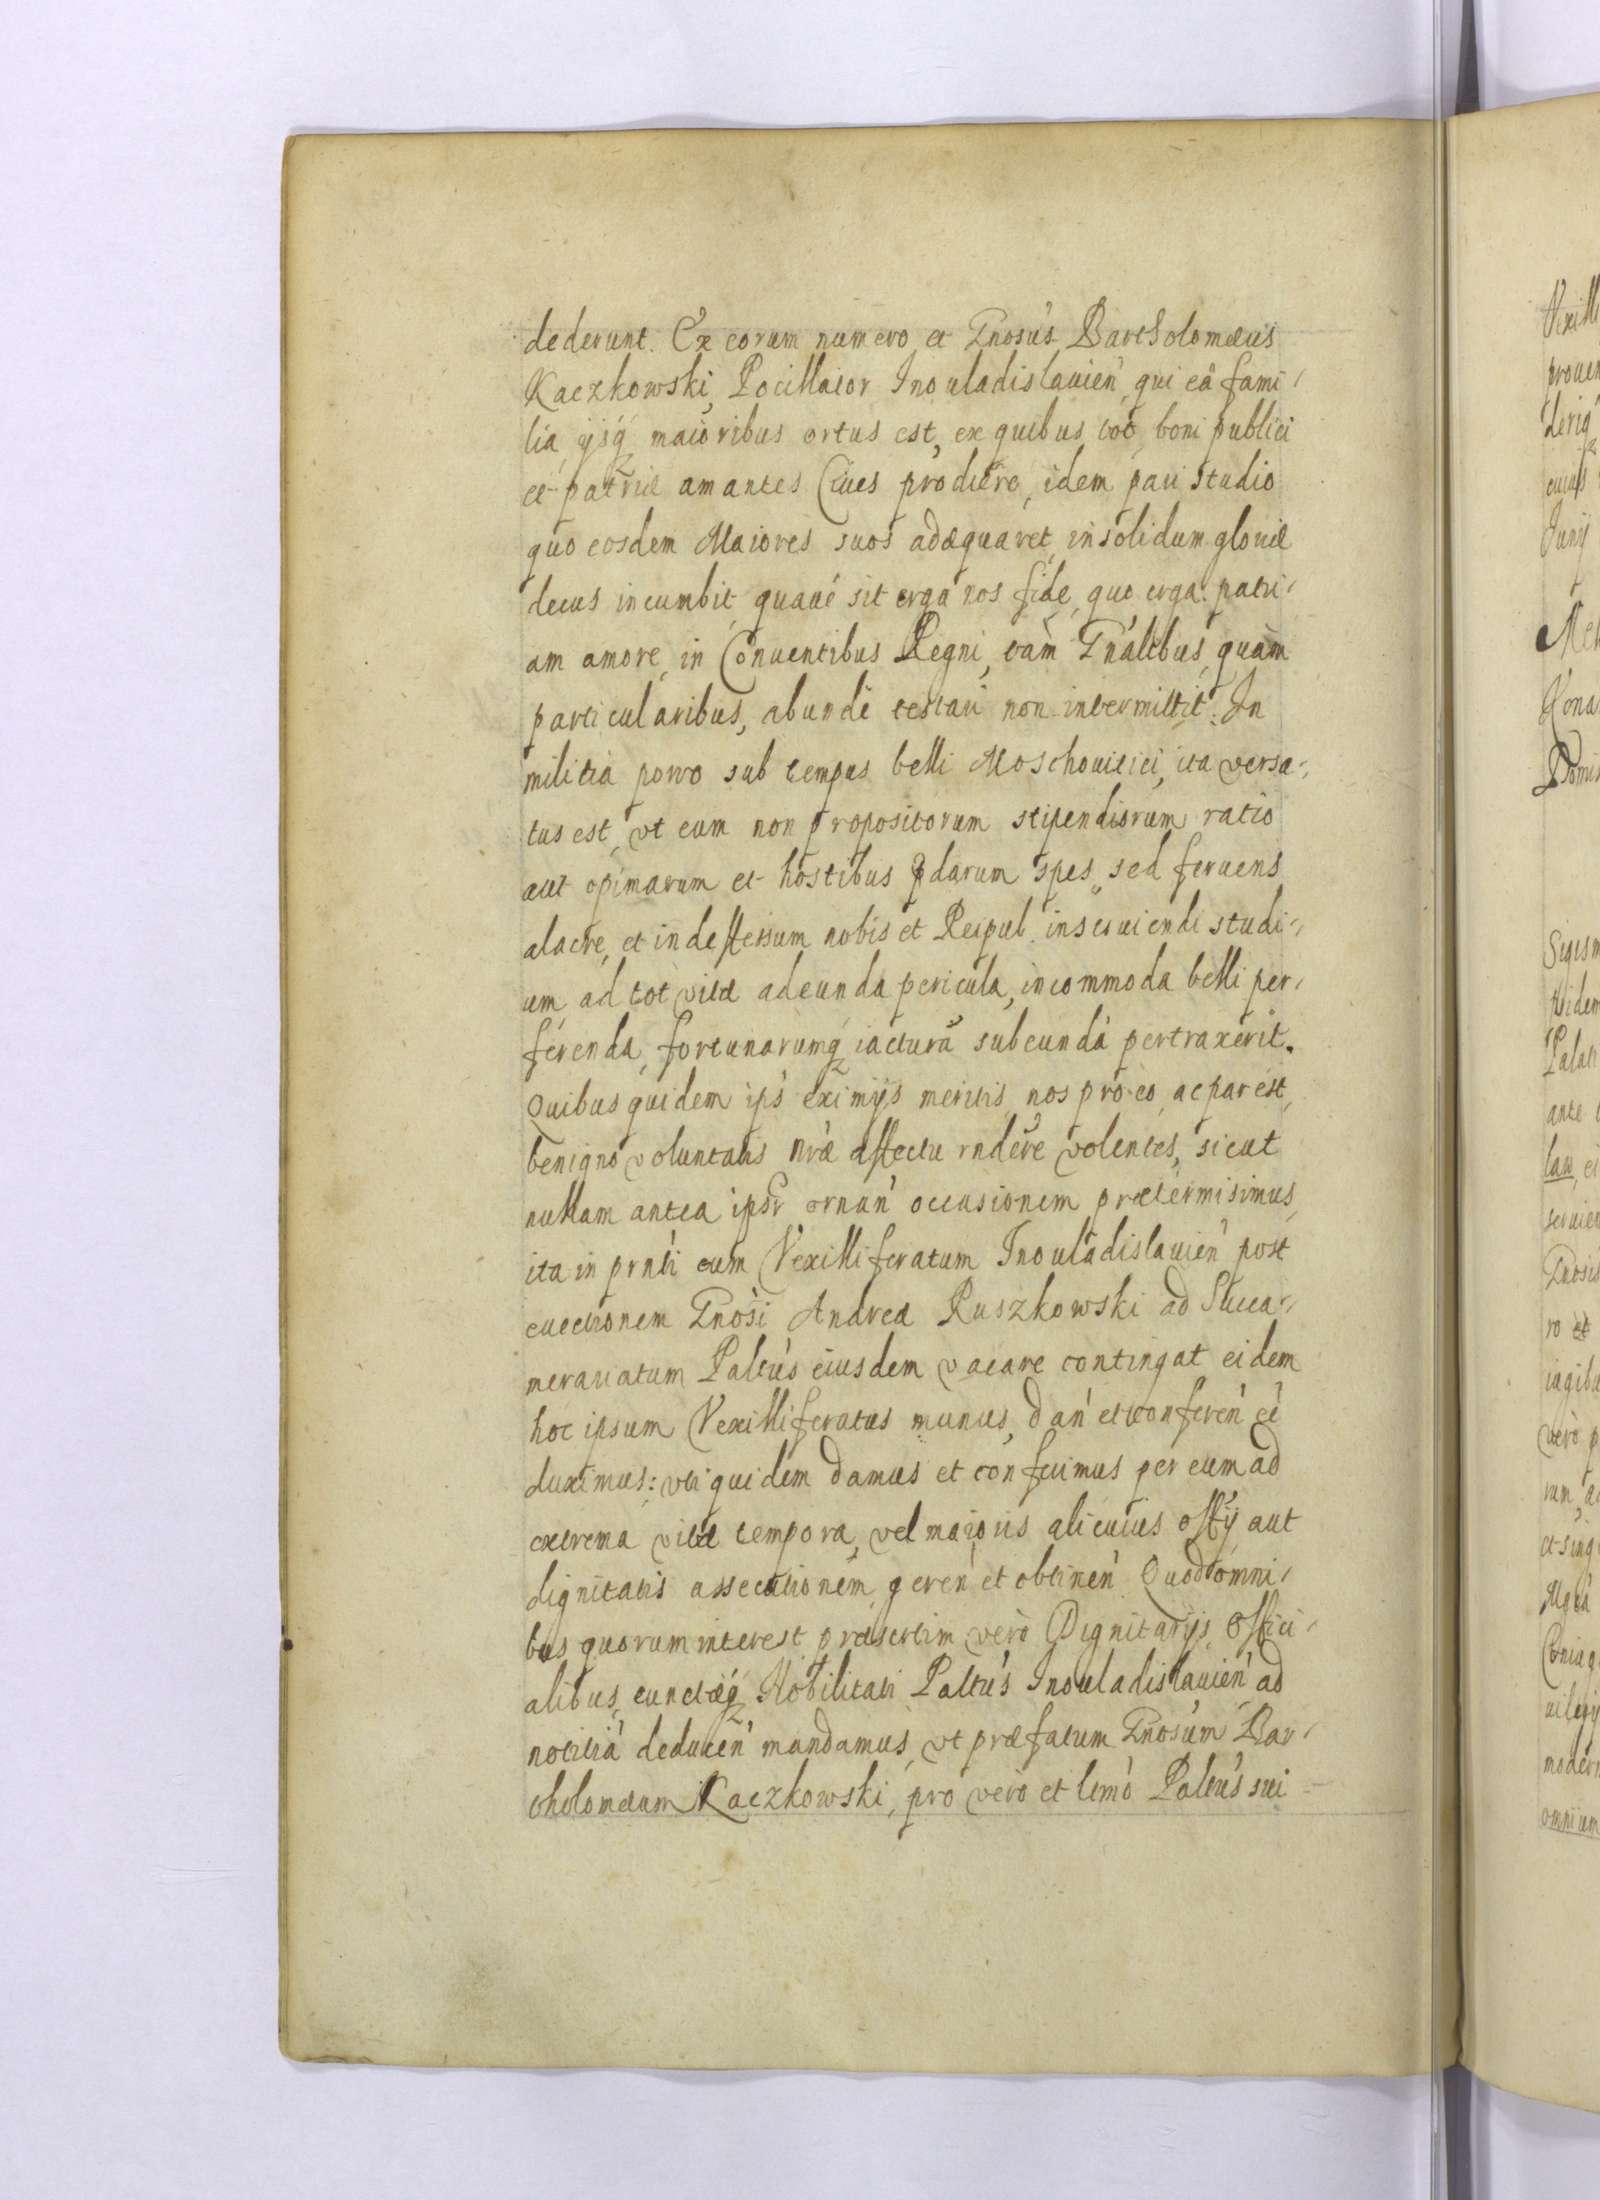 dederunt. Ex eorum numero et Gnosus Bartholomæus
Kaczkowski, Pocillator Inouladislauien, qui eâ fami-
lia, ijsq maioribus ortus est, ex quibus tot boni publici
et patriæ amantes Ciues prodiere, idem pari studio
quo eosdem Maiores suos adæquaret, in solidum gloriæ
decus incumbit, quaue sit erga nos fide, quo erga patri-
am amore, in Conuentibus Regni, tam Gnalibus, quàm
particularibus, abundè testari non intermittit. In
militia porro sub tempus belli Moschouitici, ita versa-
tus est, vt eum non propositorum stipendiorum ratio
aut opimarum et hostibus pdarum spes, sed feruens
alacre, et indefessum nobis et Reipub. inseruiendi studi-
um, ad tot vitæ adeunda pericula, incommoda belli per-
ferenda, fortunarumq iacturâ subeundâ pertraxerit.
Quibus quidem ips eximijs meritis, nos pro eo, ac par est,
benigno voluntatis nræ affectu rndere volentes, sicut
nullam antea ipsr ornan occasionem prætermisimus,
ita in prnti cum Vexilliferatum Inouladislauien post
euectionem Gnosi Andreæ Ruszkowski ad Succa-
merariatum Paltus eiusdem vacare contingat eidem
hoc ipsum Vexilliferatus munus, dan et conferen eê
duximus: vti quidem damus et conferimus per eum ad
extrema vitæ tempora, vel maioris alicuius offij aut
dignitatis assecutionem, geren et obtinen. Quod omni-
bus quorum interest, præsertim verò Dignitarijs, Offici-
alibus, cunctæq Nobilitati Paltus Inouladislauien ad
notitiâ deducen mandamus, vt præfatum Gnosum Bar-
tholomæum Kaczkowski, pro vero et ltmo Paltus sui